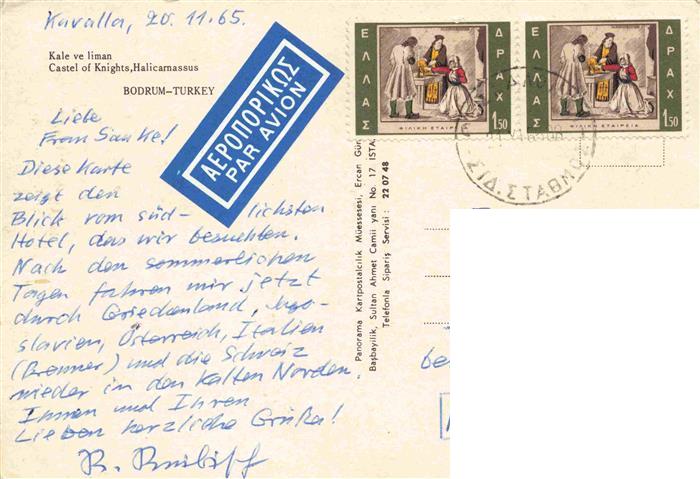 Kavalla, 20.11.65.
Kale ve liman
Castel of Knights, Halicarnassus
BODRUM–TURKEY
Liebe
Frau Sauke!
Diese Karte
zeigt den
Blick vom süd- lichsten
Hotel, das wir besuchten.
Nach den sommerlichen
Tagen fahren wir jetzt
durch Griechenland, Jugo-
slavien, Österreich, Italien
(Brenner) und die Schweiz
wieder in den kalten Norden.
Ihnen und Ihren
Lieben herzliche Grüße!
ΑΕΡΟΠΟΡΙΚΩΣ
PAR AVION
Panorama Kartpostalcilik Müessesesi, Ercan Gün
Başbayilik, Sultan Ahmet Camii yanı No. 17 İSTA
Telefonla Sipariş Servisi : 22 07 48
ΕΛΛΑΣ
ΔΡΑΧ
1.50
ΦΙΛΙΚΗ ΕΤΑΙΡΕΙΑ
ΕΛΛΑΣ
ΔΡΑΧ
1.50
ΦΙΛΙΚΗ ΕΤΑΙΡΕΙΑ
ΣΙΔ. ΣΤΑΘΜΟ
be